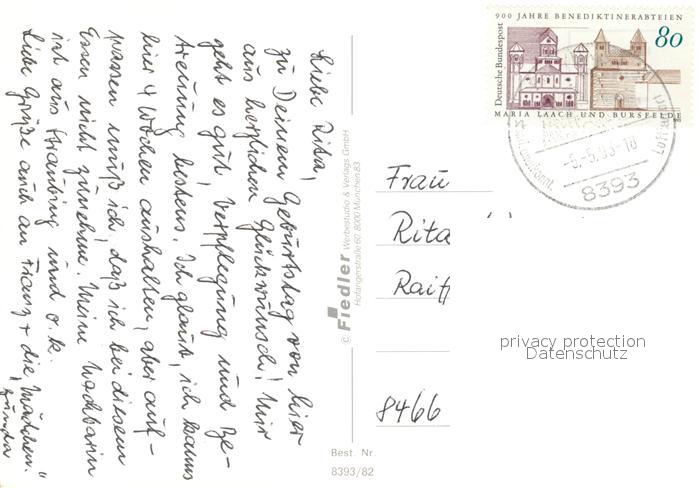 Liebe Rita,
zu Deinem Geburtstag von hier
aus herzlichen Glückwunsch! Mir
geht es gut, Verpflegung und Be-
treuung bestens. Ich glaub, ich kanns
hier 4 Wochen aushalten, aber auf-
passen muß ich, daß ich bei diesem
Essen nicht zunehme. Meine Nachbarin
ist aus Straubing und o.k.
Liebe Grüße auch an Franz + die „Mädchen“
© Fiedler Werbestudio & Verlags GmbH
Hofangerstraße 60, 8000 München 83
900 JAHRE BENEDIKTINERABTEIEN
Deutsche Bundespost
80
MARIA LAACH UND BURSFELDE
-5.-5.93-10
8393
Frau
Rita
Raiff
8466
privacy protection
Datenschutz
Best. Nr.
8393/82